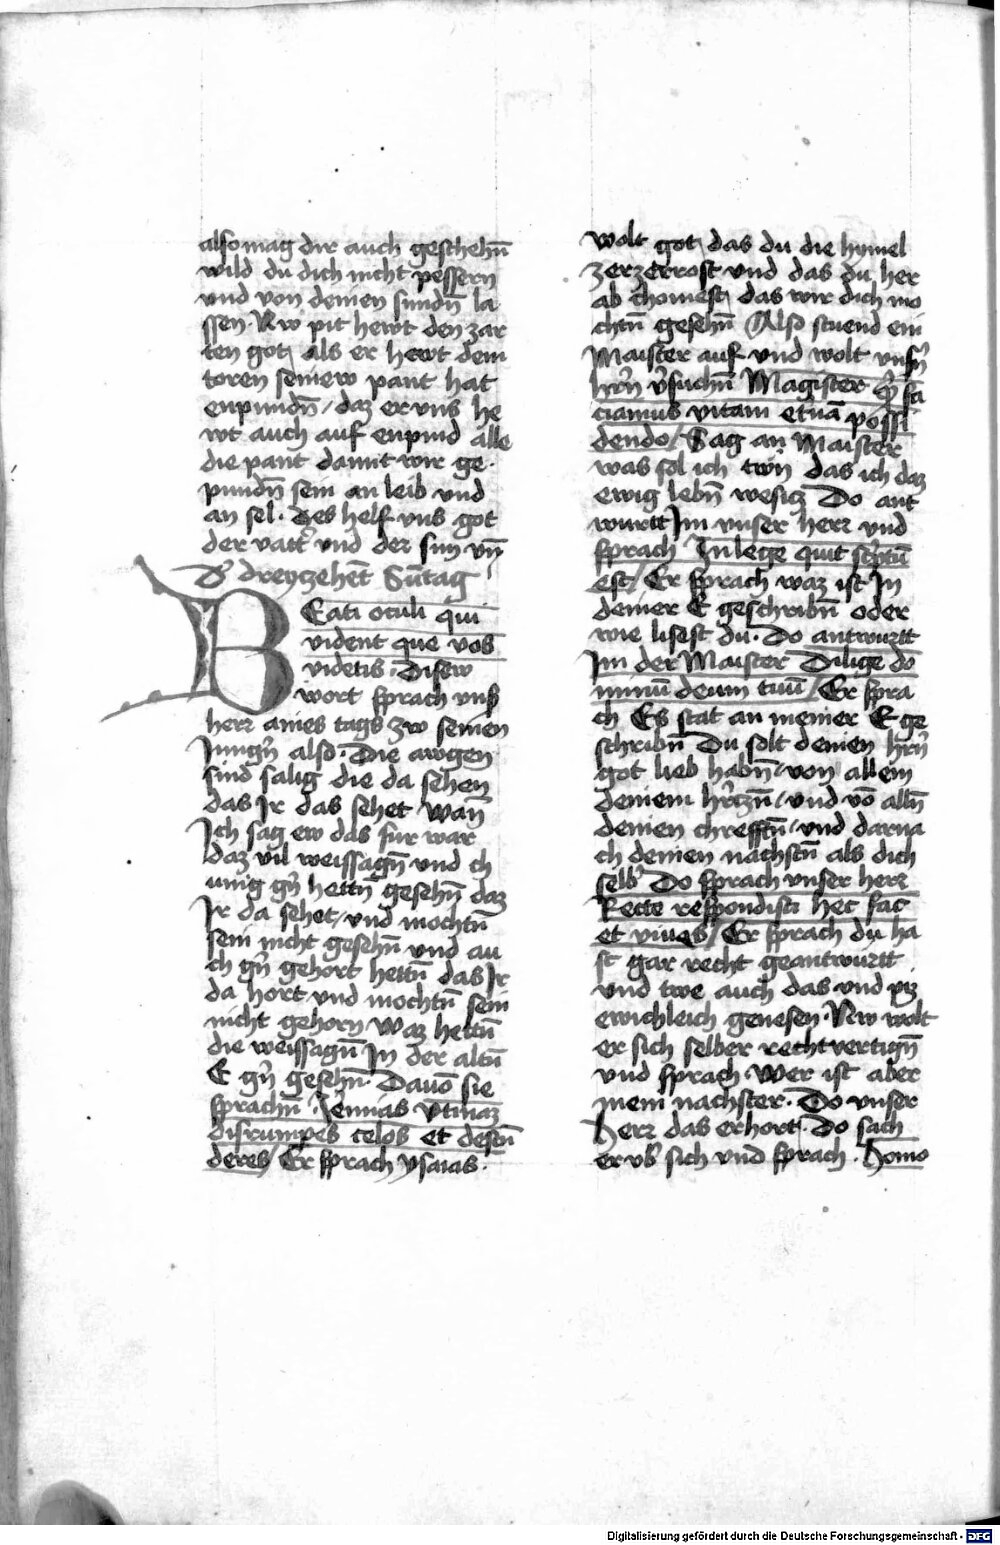 also mag dir auch geschehn̄
wild du dich nicht pessern
vnd von deinen sundn̄ la
ssen. Nw pit hewt den zar
ten got, als er hewt dem
toren seinew pant hat
enpundn̄ / daz er vns he
wt auch auf enpind alle
die pant damit wir ge
pundn̄ sein an leib vnd
an sel. Des helf vns got
der vatt' vnd der sun vn̄
D' dreyzehēt Sūtag
Beati oculi qui
vident que vos
videtis. Disew
wort sprach vnß
herr aines tags zw seinen
Jungn̄ also. Die awgen
sind salig die da sehen
das Jr das sehet Wan̄
Ich sag ew das fur war
daz vil weissagn̄ vnd ch
unig gn̄ hettn̄ gesehn̄ daz
Jr da sehet / vnd mochtn̄
sein nicht gesehn̄ vnd au
ch gn̄ gehort hettn̄ das Jr
da hort vnd mochtn̄ sein
nicht gehorn Waz hettn̄
die weissagn̄ Jn der altn̄
E gn̄ gesehn̄. Dauō sie
sprachn̄. Vtinaz
disrumpes celos et descn̄
deres / Er sprach ysaias.
wolt got, das du die hymel
zerzerrost vnd das du her
ab chomest, das wir dich mo
chtn̄ gesehn̄ Also stuend ein
Maister auf vnd wolt vnsn̄
hr̄n v'suchn̄ Magister q' fa
ciamus vitam et'nā possi
dendo / Sag an Maister
was sol ich twn das ich daz
ewig lebn̄ wesicz Do ant
wurtt Im vnser herr vnd
sprach In lege quit sc'ptū
est / Er sprach waz ist In
deiner E geschribn̄ oder
wie lisest du. Do antwurtt
Im der Maister Dilige do
minū deum tuū / Er spra
ch Es stat an meiner E ge
schribn̄ Du solt deinen hr̄n
got lieb habn̄ / von allem
deinem hr̄czn̄ / vnd vō alln̄
deinen chrefftn̄ / vnd darna
ch deinen nachstn̄ als dich
selb' Do sprach vnser herr
Recte respondisti hec fac
et viues / Er sprach du ha
st gar recht geantwurtt
vnd twe auch das vnd piz
ewichleich genesen. Nw wolt
er sich selber rechtvertign̄
vnd sprach. Wer ist aber
mein nachster. Do vnser
Herr das erhort. Do sach
er vb' sich vnd sprach. Homo
Digitalisierung gefördert durch die Deutsche Forschungsgemeinschaft - DFG